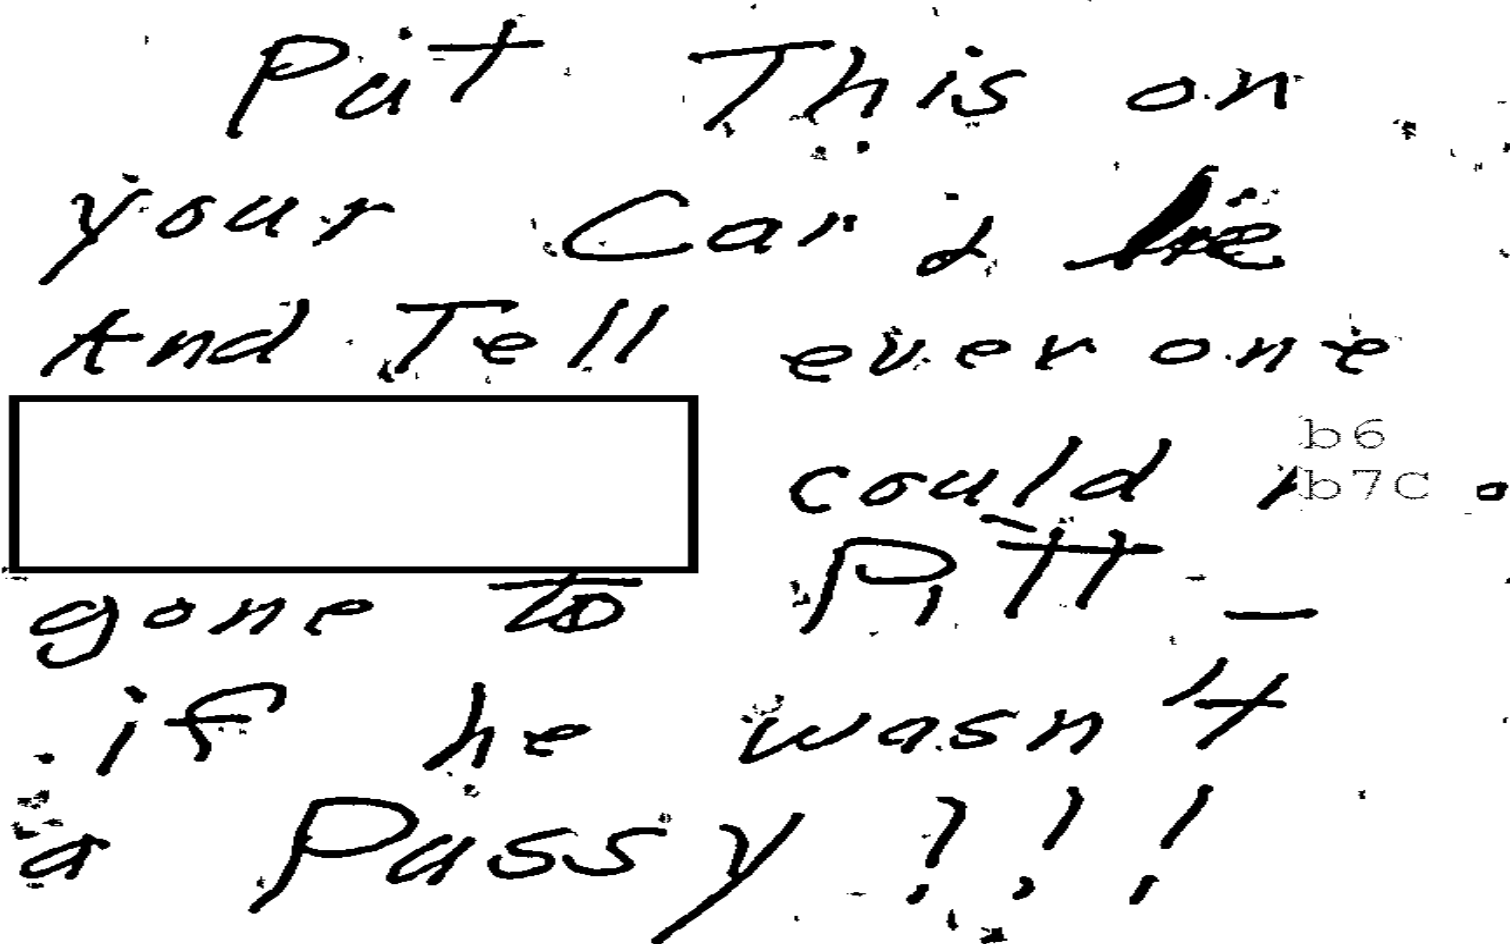 Put This on
your Car & lie
And Tell ever one
could b6
b7C
gone to Pitt -
if he wasn't
a Pussy !!!